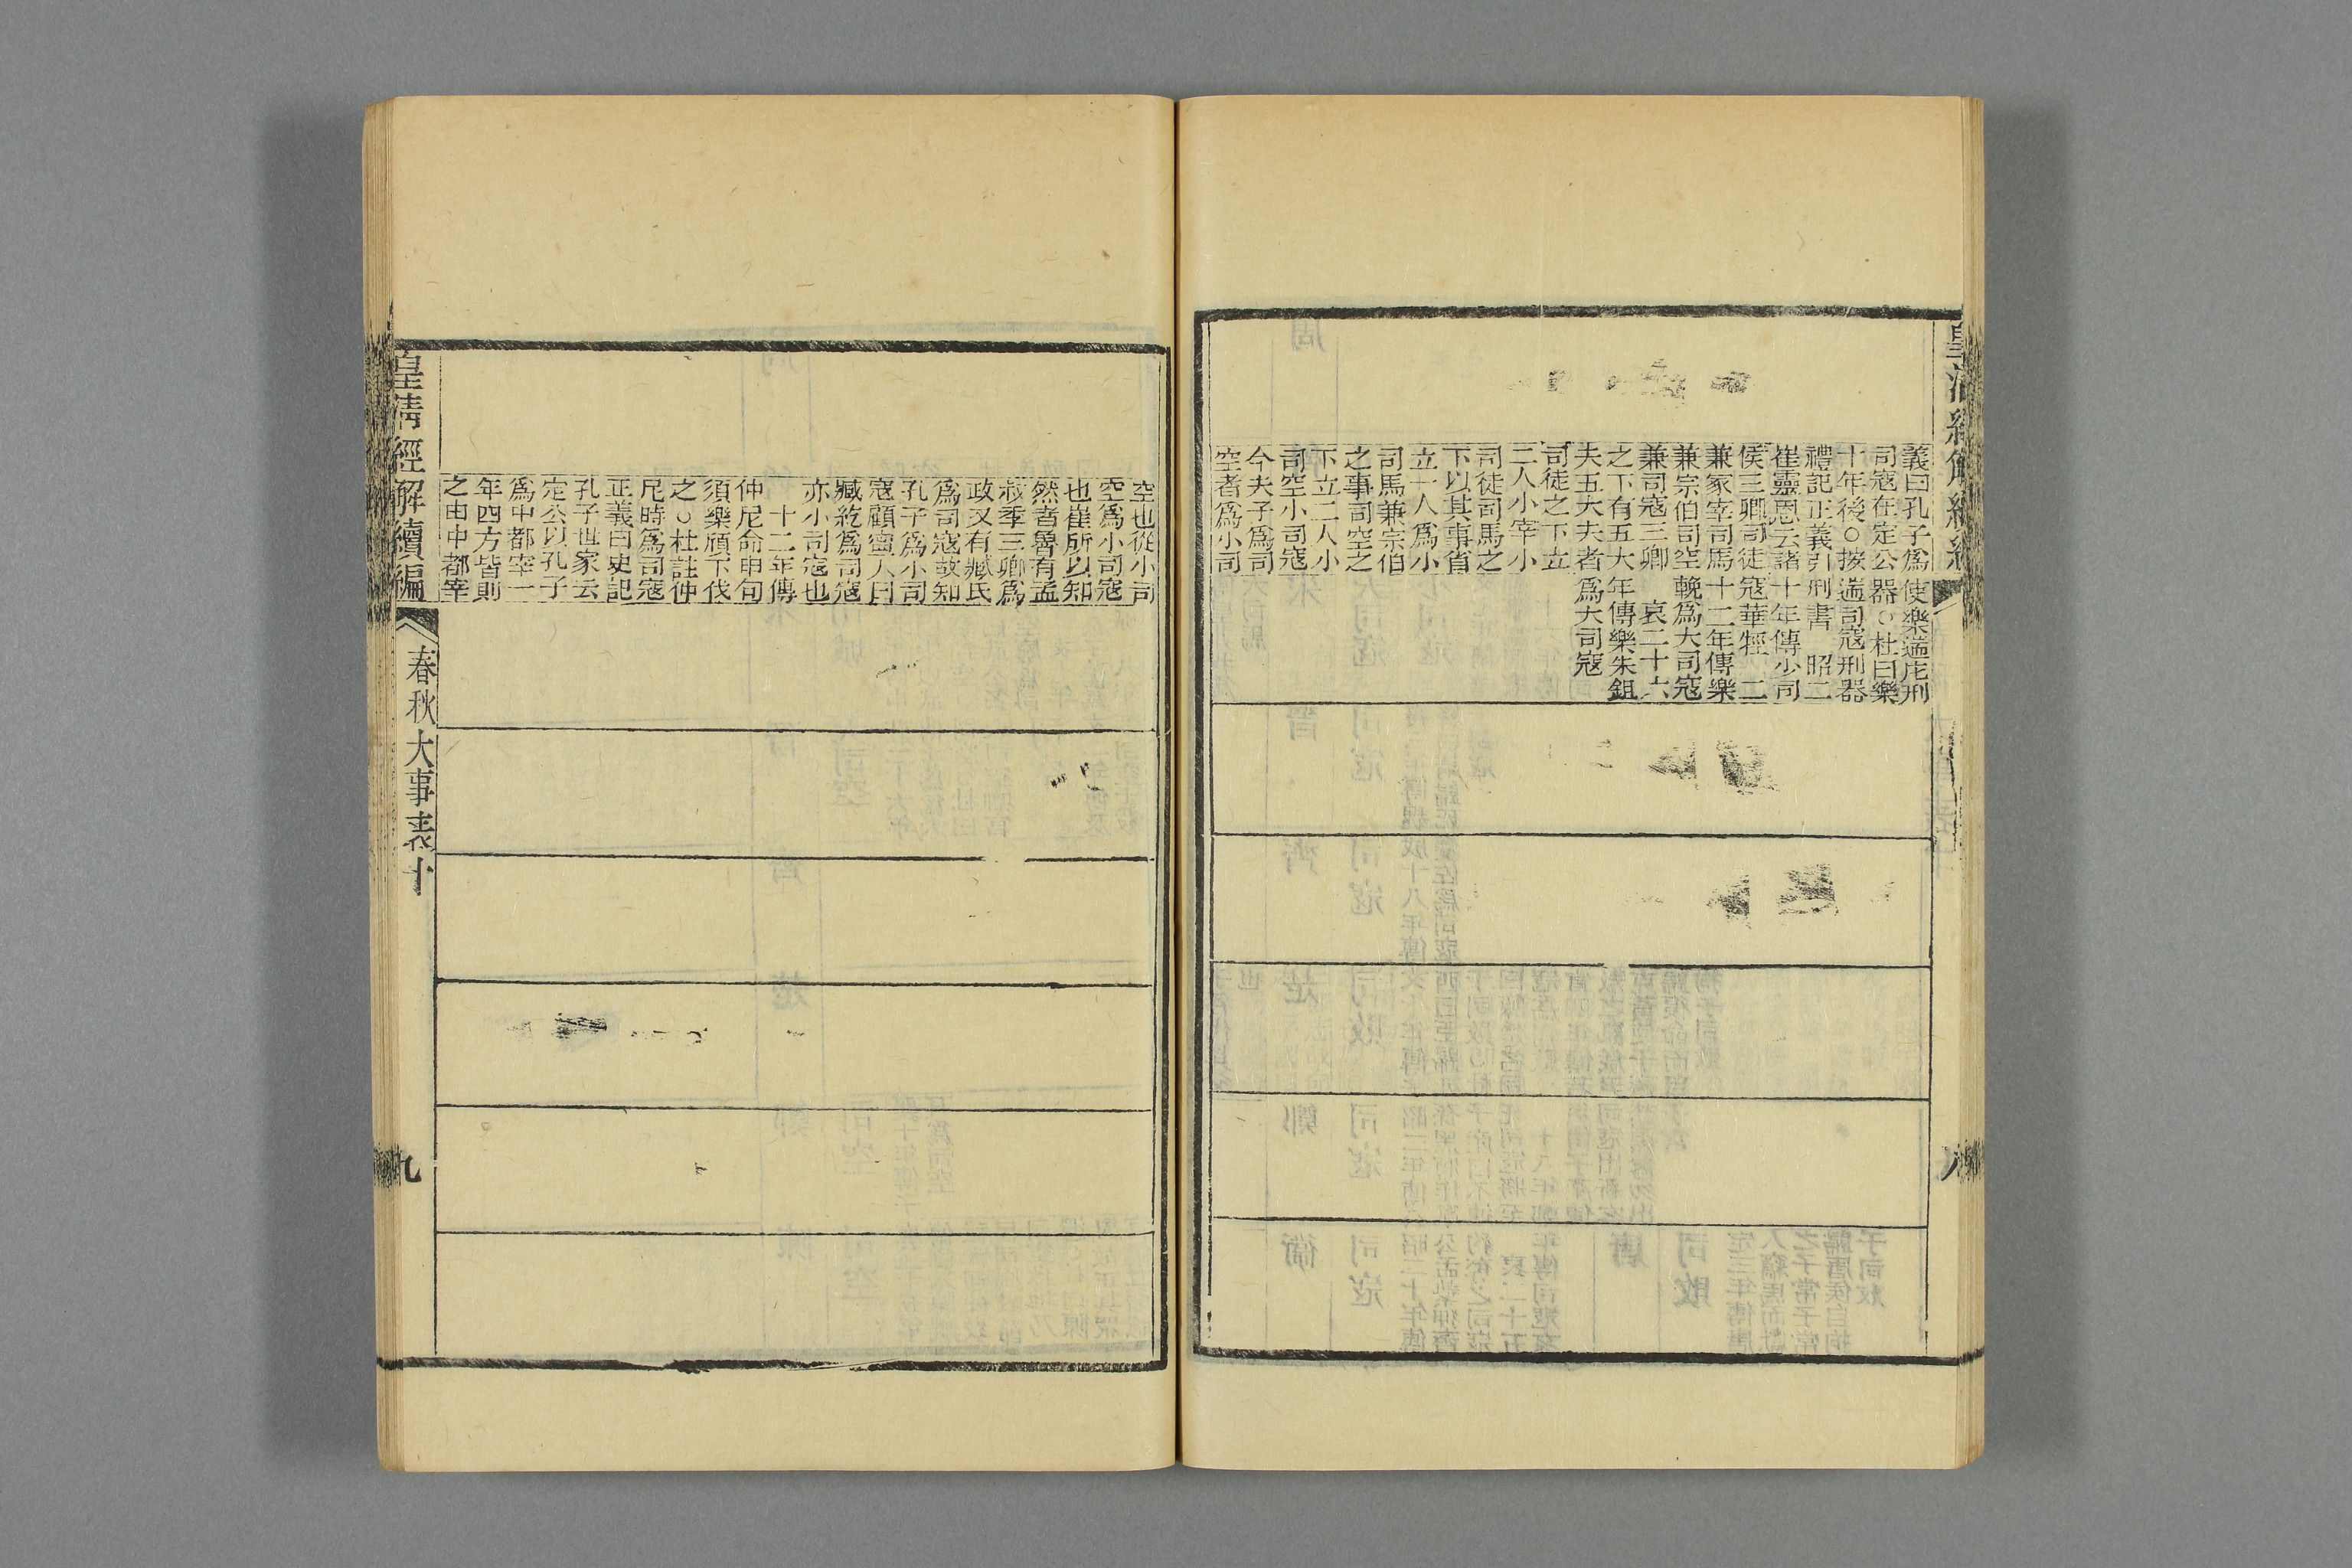 皇清經解續編
八
義曰孔子爲
司寇在定公
十年後○按
禮記正義引
崔靈恩云諸
侯三卿司徒
兼冢宰司馬
兼宗伯司空
兼司寇三卿
之下有五大
夫五大夫者
司徒之下立
二人小宰小
司徒司馬之
下以其事省
立一人爲小
司馬兼宗伯
之事司空之
下立二人小
司空小司寇
今夫子爲司
空者爲小司
使樂遄庀刑
器○杜曰樂
遄司寇刑器
刑書　昭二
十年傳少司
寇華牼　二
十二年傳樂
輓爲大司寇
哀二十六
年傳樂朱鉏
爲大司寇
空也從小司
空爲小司寇
也崔所以知
然者魯有孟
叔季三卿爲
政又有臧氏
爲司寇故知
孔子爲小司
寇顧寧人曰
臧紇爲司寇
亦小司寇也
十二年傳
仲尼命申句
須樂頎下伐
之○杜註仲
尼時爲司寇
正義曰史記
孔子世家云
定公以孔子
爲中都宰一
年四方皆則
之由中都宰
皇清經解續編
春秋大事表十
九